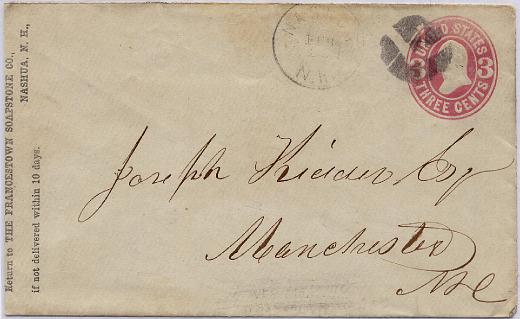 Return to THE FRANCESTOWN SOAPSTONE CO.,
NASHUA, N. H.,
if not delivered within 10 days.
N.H.
UNITED STATES
3 3
THREE CENTS
Joseph Kidder Esq
Manchester